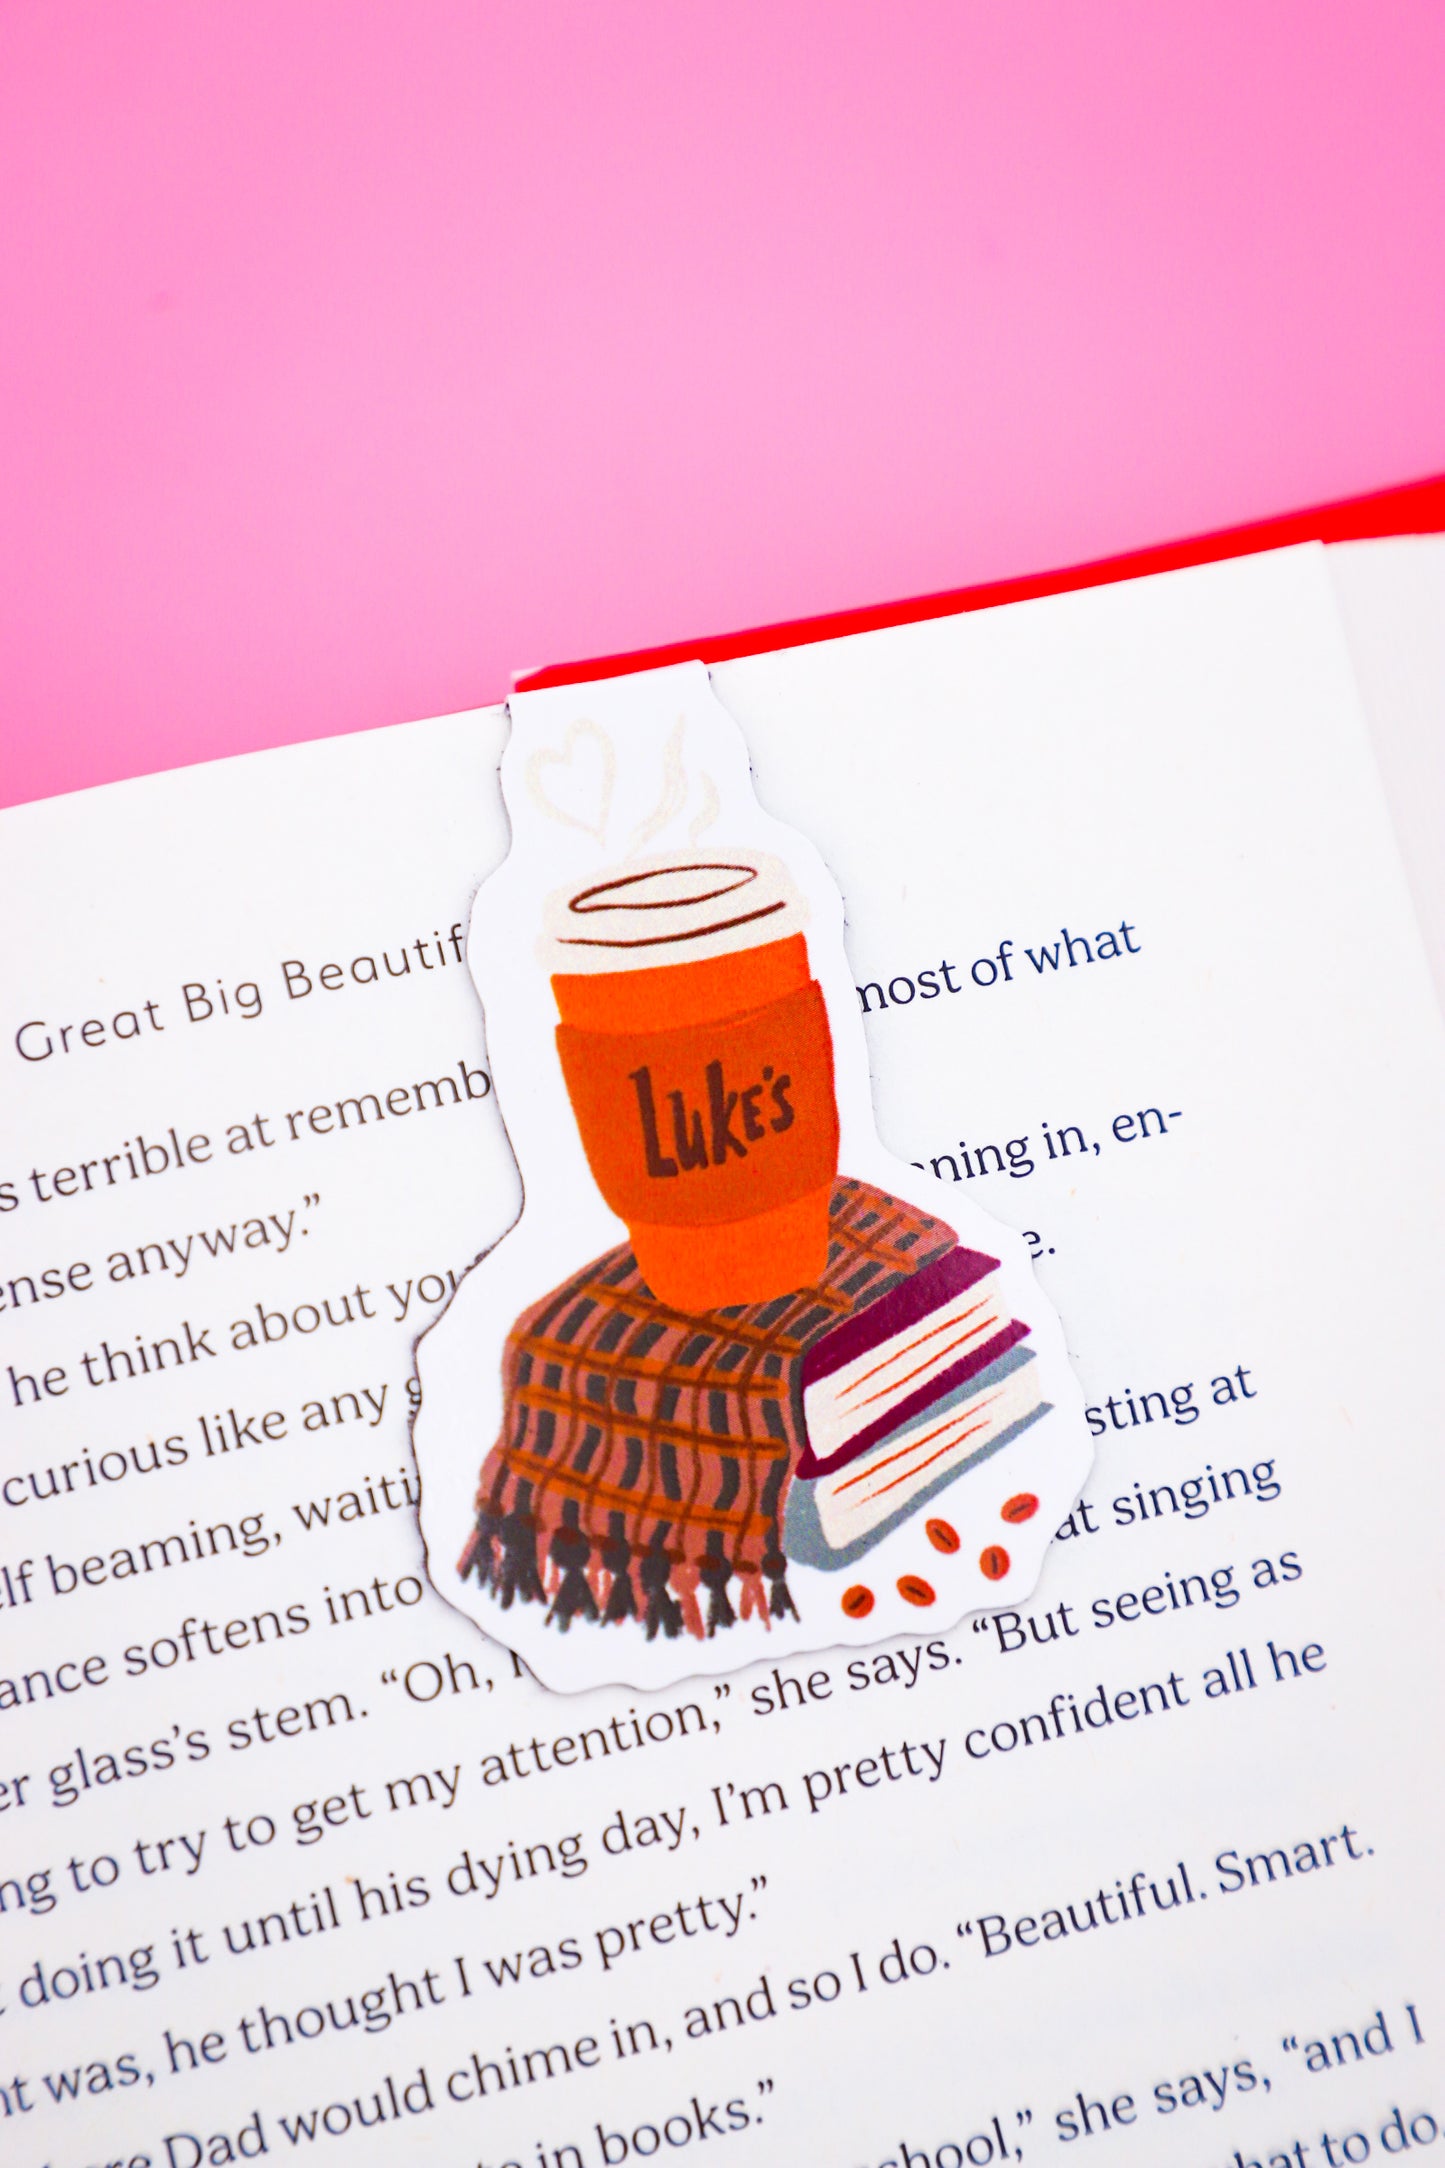 Great Big Beautif
most of what
s terrible at rememb
ense anyway.”
ning in, en-
he think about you
e.
curious like any
elf beaming, waiti
sting at
ance softens into
at singing
er glass’s stem. “Oh,
“But seeing as
ng to try to get my attention,” she says.
doing it until his dying day, I’m pretty confident all he
nt was, he thought I was pretty.”
Dad would chime in, and so I do. “Beautiful. Smart.
in books.”
chool,” she says, “and I
hat to do.
Luke's